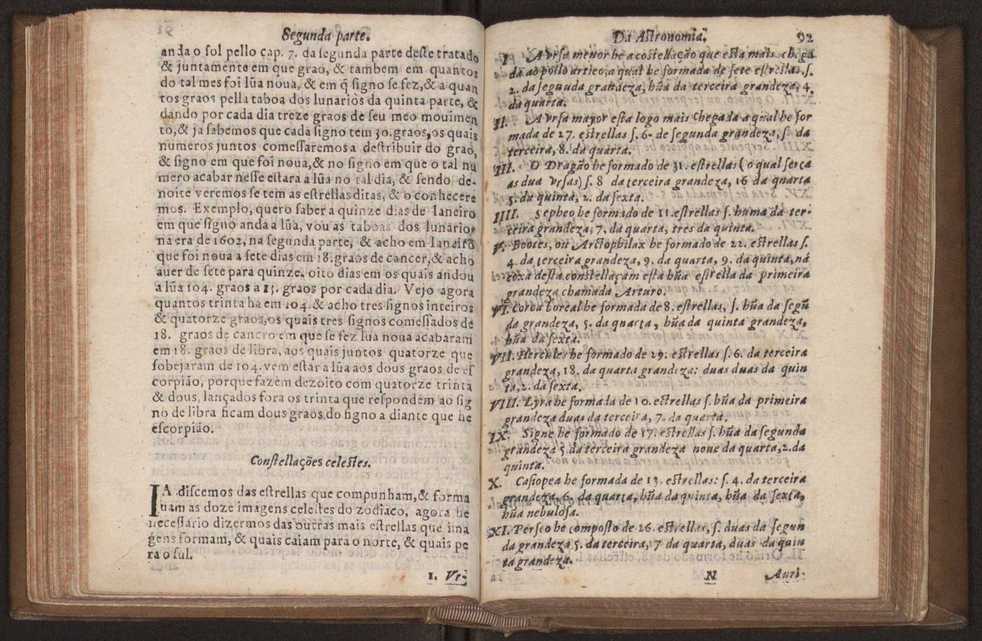 Segunda parte.
anda o sol pello cap. 7. da segunda parte deste tratado
& juntamente em que grao, & tambem em quantos
do tal mes foi lũa noua, & em q̃ signo se fez, & a quan
tos graos pella taboa dos lunarios da quinta parte, &
dando por cada dia treze graos de seu meo mouimen
to, & ja sabemos que cada signo tem 30. graos, os quais
numeros juntos comessaremos a destribuir do grao,
& signo em que foi noua, & no signo em que o tal nu
mero acabar nesse estara a lũa no tal dia, & sendo de
noite veremos se tem as estrellas ditas, & o conhecere
mos. Exemplo, quero saber a quinze dias de Ianeiro
em que signo anda a lũa, vou as taboas dos lunarios
na era de 1602, na segunda parte, & acho em Ianeiro
que foi noua a sete dias em 18. graos de cancer, & acho
auer de sete para quinze, oito dias em os quais andou
a lũa 104. graos a 13. graos por cada dia. Vejo agora
quantos trinta ha em 104. & acho tres signos inteiros
& quatorze graos, os quais tres signos comessados de
18. graos de cancro em que se fez lua noua acabaram
em 18. graos de libra, aos quais juntos quatorze que
sobejaram de 104. vem estar a lũa aos dous graos de es
corpião, porque fazem dezoito com quatorze trinta
& dous, lançados fora os trinta que respondem ao sig
no de libra ficam dous graos do signo a diante que he
escorpião.
Constellações celestes.
IA discemos das estrellas que compunham, & forma
uam as doze imagens celestes do zodiaco, agora he
necessario dizermos das outras mais estrellas que ima
gens formam, & quais caiam para o norte, & quais pe
ra o sul.
1. Vr-
Da Astronomia. 92
I. A vrsa menor he a costellação que esta mais chega
da ao pollo artico, a qual he formada de sete estrellas. s.
2. da segunda grandeza, hũa da terceira grandeza, 4.
da quarta.
II. A vrsa mayor esta logo mais chegada a qual he for
mada de 27. estrellas s. 6- de segunda grandeza, s. da
terceira, 8. da quarta.
III. O Dragão he formado de 31. estrellas (o qual serca
as dua vrsas) s. 8 da terceira grandeza, 16 da quarta
5. da quinta, 2. da sexta.
IIII. Sepheo he formado de 11. estrellas s. huma da ter-
ceira grandeza, 7. da quarta, tres da quinta.
V. Bootes, ou Arctophilax he formado de 22. estrellas s.
4. da terceira grandeza, 9. da quarta, 9. da quinta, ná
coxa desta constellaçam esta hũa estrella da primeira
grandeza chamada Arturo.
VI. Coroa boreal he formada de 8. estrellas, s. hũa da segũ
da grandeza, 5. da quarta, hũa da quinta grandeza,
hũa da sexta.
VII. Hercules he formado de 29. estrellas s. 6. da terceira
grandeza, 18. da quarta grandeza: duas duas da quin
ta, 2. da sexta.
VIII. Lyra he formada de 10. estrellas s. hũa da primeira
grandeza duas da terceira, 7. da quarta.
IX. Signe he formado de 17. estrellas s. hũa da segunda
grandeza 5 da terceira grandeza noue da quarta, 2. da
quinta.
X. Casiopea he formada de 13. estrellas: s. 4. da terceira
grandeza, 6. da quarta, hũa da quinta, hũa da sexta,
hũa nebulosa.
XI. Perseo he composto de 26. estrellas, s. duas da segun
da grandeza 5. da terceira, 7 da quarta, duas da quin
ta grandeza.
N Auri-